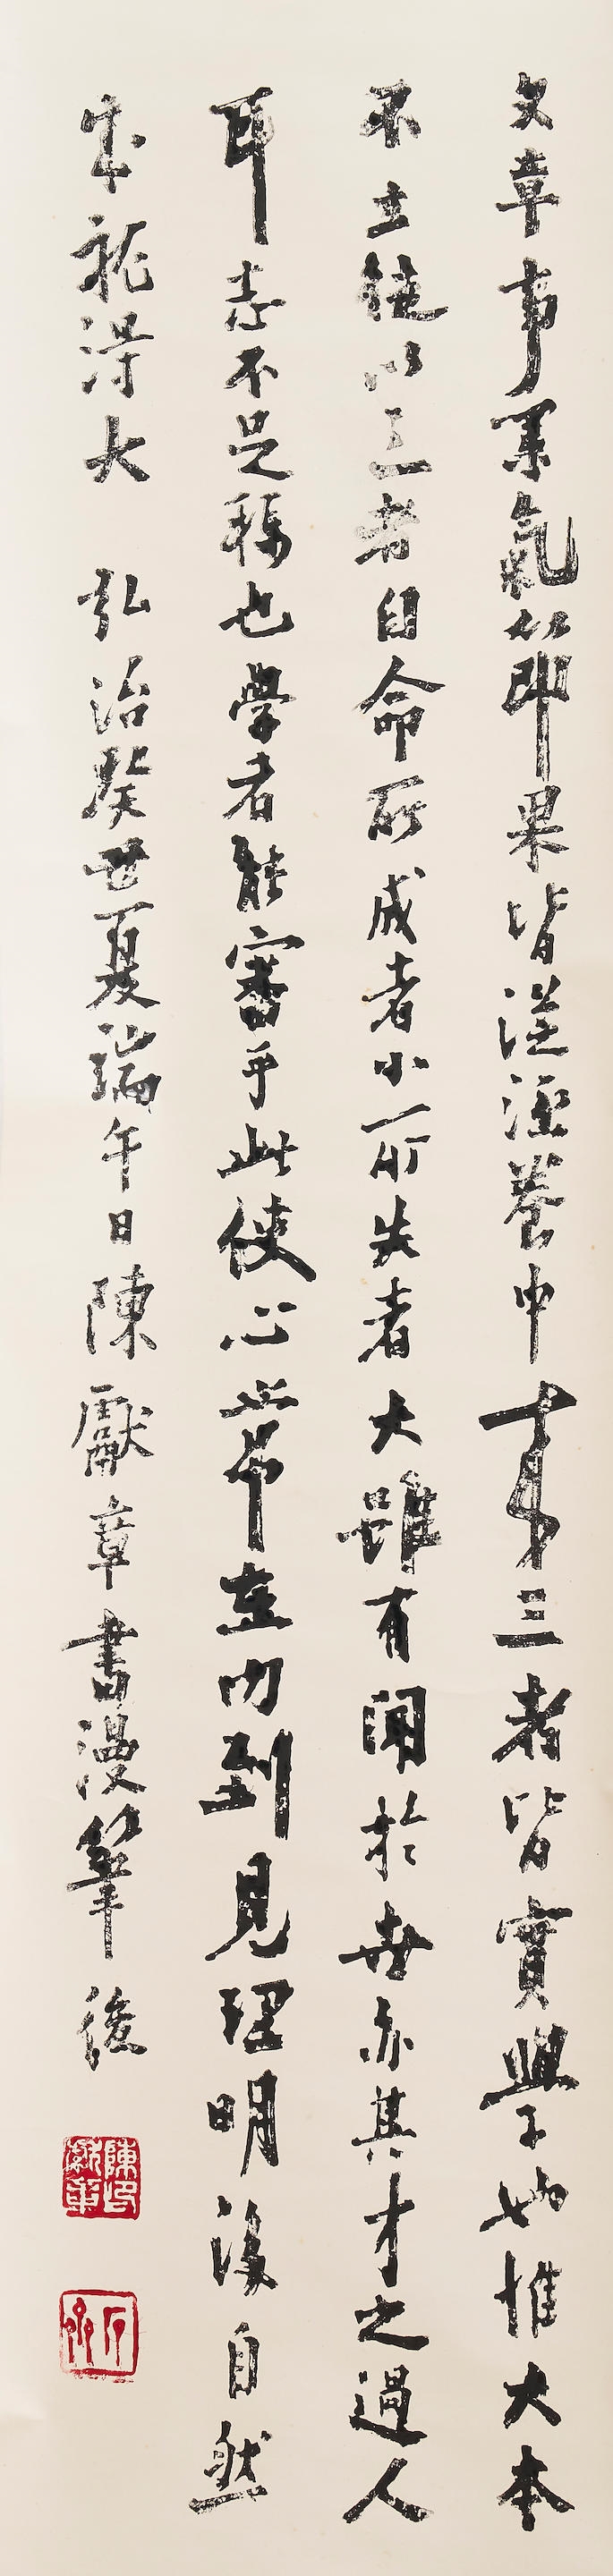 文章事業氣節果皆從涵養中來三者皆實學也惟大本
不立徒以三者自命所成者小所失者大雖有聞於世亦其才之過人
耳志不足稱也學者能審乎此使心常在內到見理明後自然
成就得大 弘治癸丑夏端午日陳獻章書漫筆後
陳獻章印
石齋